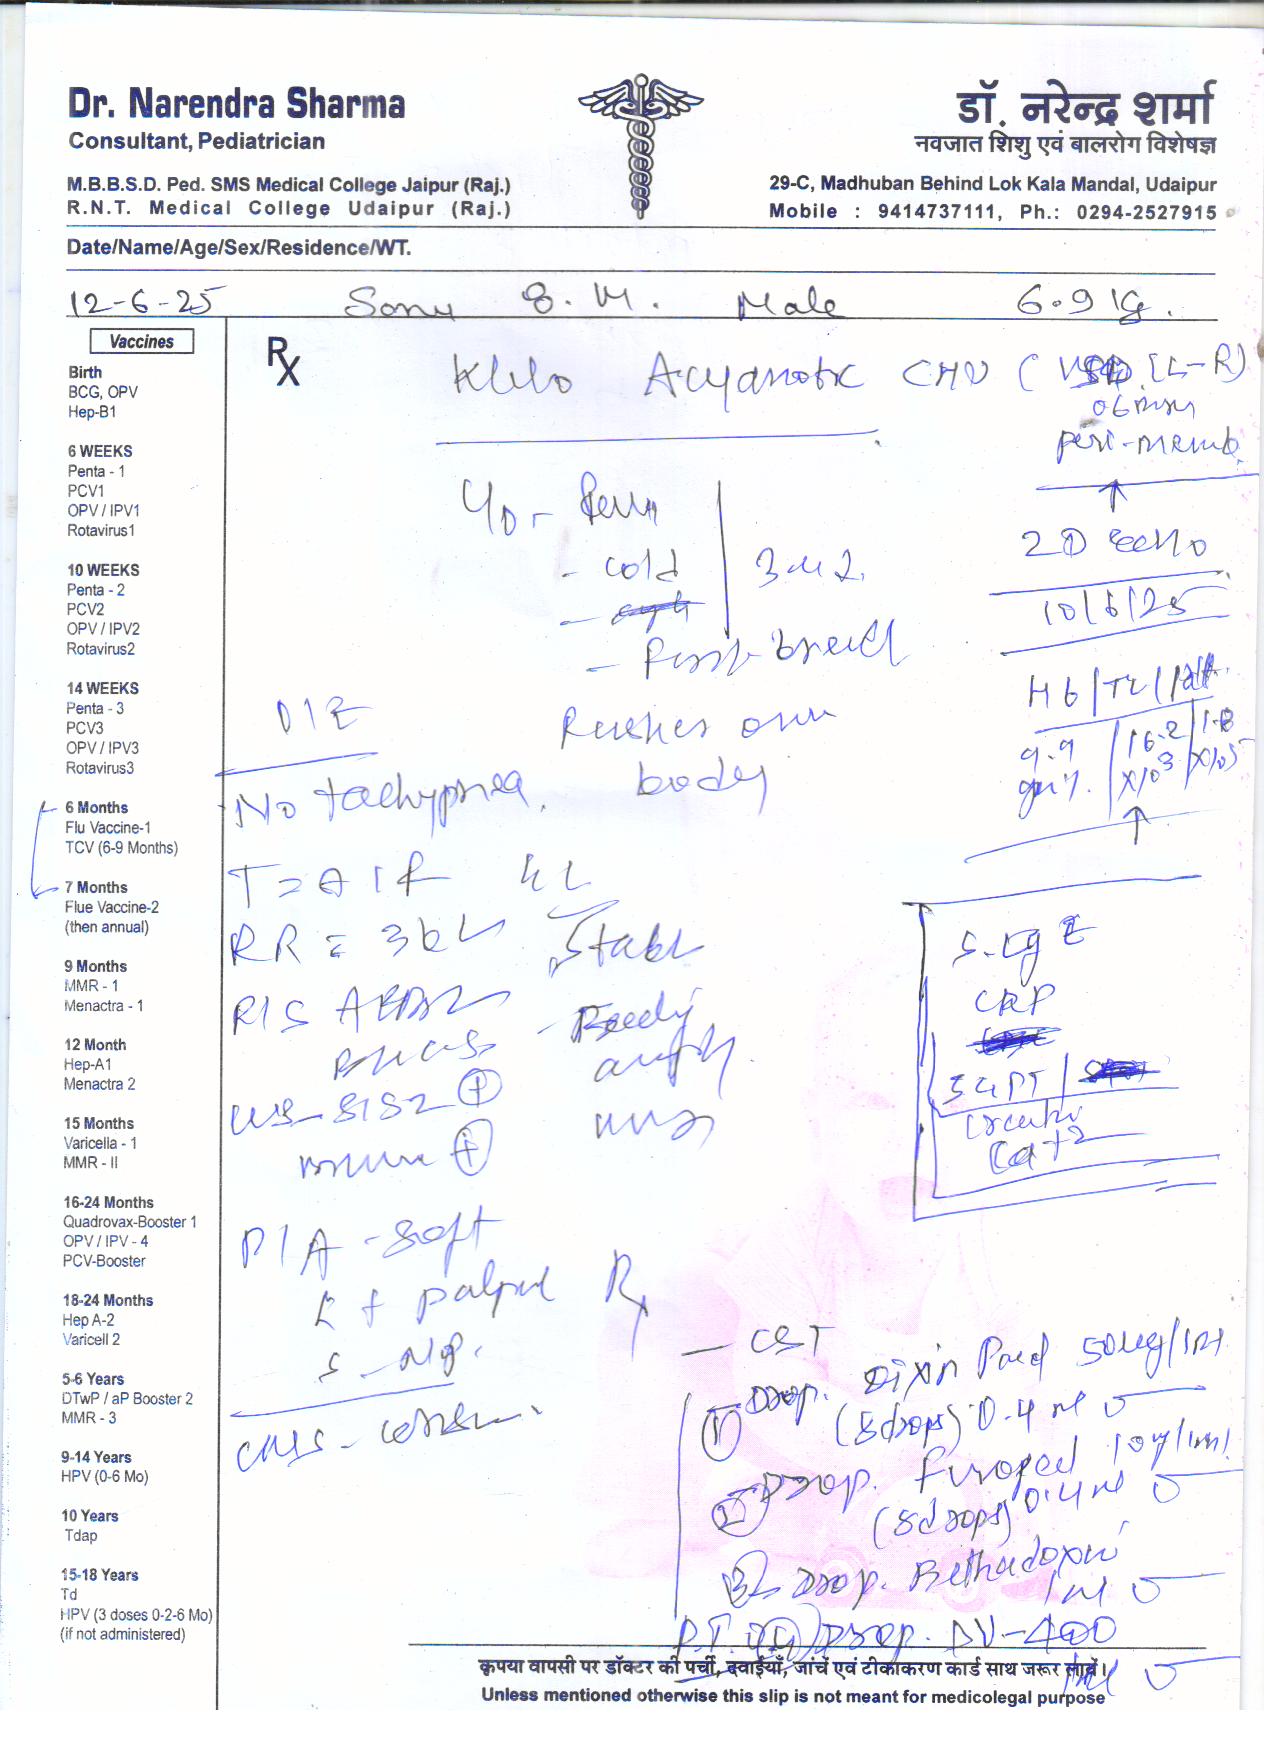 Dr. Narendra Sharma
Consultant, Pediatrician
M.B.B.S.D. Ped. SMS Medical College Jaipur (Raj.)
R.N.T. Medical College Udaipur (Raj.)
डॉ. नरेन्द्र शर्मा
नवजात शिशु एवं बालरोग विशेषज्ञ
29-C, Madhuban Behind Lok Kala Mandal, Udaipur
Mobile : 9414737111, Ph.: 0294-2527915
Date/Name/Age/Sex/Residence/WT.
12-6-25 Sonu 8.M. Male 6.9 kg.
Vaccines
Birth
BCG, OPV
Hep-B1
6 WEEKS
Penta - 1
PCV1
OPV / IPV1
Rotavirus1
10 WEEKS
Penta - 2
PCV2
OPV / IPV2
Rotavirus2
14 WEEKS
Penta - 3
PCV3
OPV / IPV3
Rotavirus3
6 Months
Flu Vaccine-1
TCV (6-9 Months)
7 Months
Flue Vaccine-2
(then annual)
9 Months
MMR - 1
Menactra - 1
12 Month
Hep-A1
Menactra 2
15 Months
Varicella - 1
MMR - II
16-24 Months
Quadrovax-Booster 1
OPV / IPV - 4
PCV-Booster
18-24 Months
Hep A-2
Varicell 2
5-6 Years
DTwP / aP Booster 2
MMR - 3
9-14 Years
HPV (0-6 Mo)
10 Years
Tdap
15-18 Years
Td
HPV (3 doses 0-2-6 Mo)
(if not administered)
Rx
K/c/o Acyanotic CHD (VSD [L-R)
06 mm
peri-memb.
2D echo
10/6/25
- cold
Rashes over
body
Hb/TL/Plt.
9.9 gm%. 16.2 x10³ 1.8 x10⁵
O/E
No tachypnea.
RR =
R/S AEBE
S1S2 +
P/A - soft
L + palpable
S - NP.
CNS -
S. Ig E
CRP
SGPT
Rx
- CST
① Drop. Dixin Paed 50ug/1ml
(8drops) 0.4 ml
② Drop.
(8drops) 0.4 ml
3 Drop. Bethadoxin
1ml
Drop. DV-400
1ml
कृपया वापसी पर डॉक्टर की पर्ची, दवाईयाँ, जांचें एवं टीकाकरण कार्ड साथ जरूर लावें।
Unless mentioned otherwise this slip is not meant for medicolegal purpose